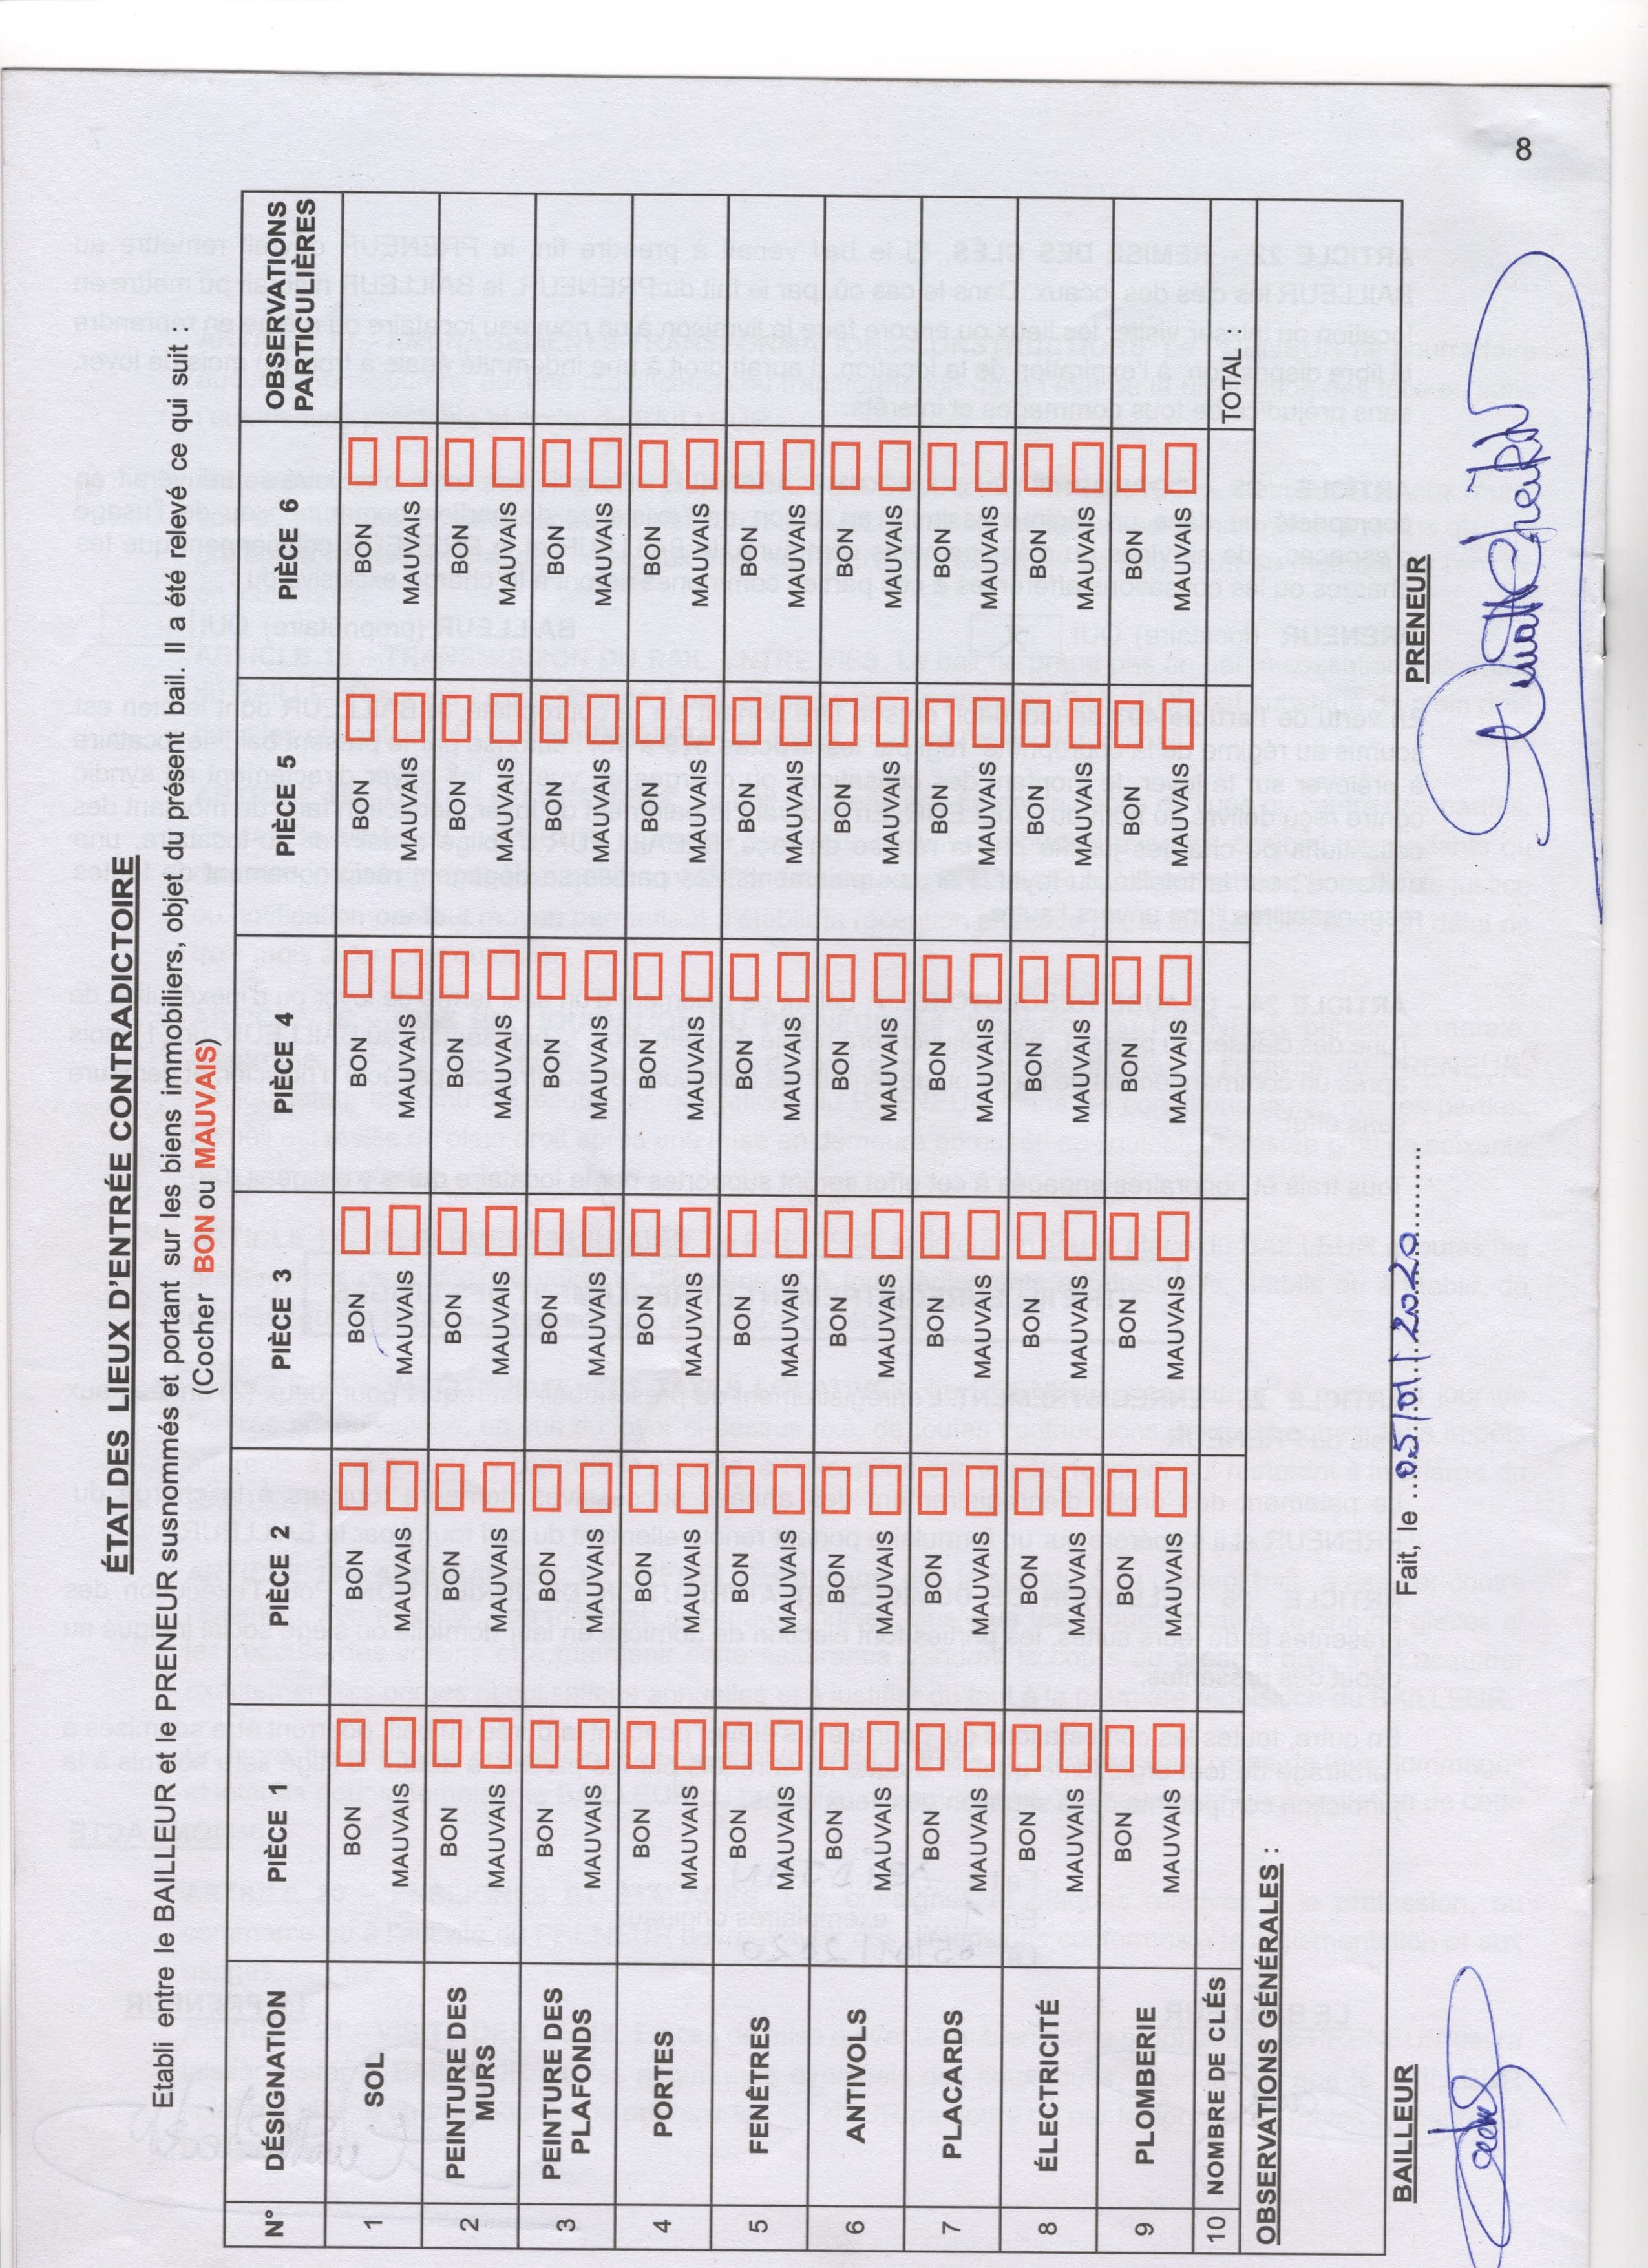 ÉTAT DES LIEUX D'ENTRÉE CONTRADICTOIRE
Etabli entre le BAILLEUR et le PRENEUR susnommés et portant sur les biens immobiliers, objet du présent bail. Il a été relevé ce qui suit :
(Cocher BON ou MAUVAIS)
N° DÉSIGNATION PIÈCE 1 PIÈCE 2 PIÈCE 3 PIÈCE 4 PIÈCE 5 PIÈCE 6 OBSERVATIONS PARTICULIÈRES
1 SOL BON BON BON BON BON BON
MAUVAIS MAUVAIS MAUVAIS MAUVAIS MAUVAIS MAUVAIS
2 PEINTURE DES MURS BON BON BON BON BON BON
MAUVAIS MAUVAIS MAUVAIS MAUVAIS MAUVAIS MAUVAIS
3 PEINTURE DES PLAFONDS BON BON BON BON BON BON
MAUVAIS MAUVAIS MAUVAIS MAUVAIS MAUVAIS MAUVAIS
4 PORTES BON BON BON BON BON BON
MAUVAIS MAUVAIS MAUVAIS MAUVAIS MAUVAIS MAUVAIS
5 FENÊTRES BON BON BON BON BON BON
MAUVAIS MAUVAIS MAUVAIS MAUVAIS MAUVAIS MAUVAIS
6 ANTIVOLS BON BON BON BON BON BON
MAUVAIS MAUVAIS MAUVAIS MAUVAIS MAUVAIS MAUVAIS
7 PLACARDS BON BON BON BON BON BON
MAUVAIS MAUVAIS MAUVAIS MAUVAIS MAUVAIS MAUVAIS
8 ÉLECTRICITÉ BON BON BON BON BON BON
MAUVAIS MAUVAIS MAUVAIS MAUVAIS MAUVAIS MAUVAIS
9 PLOMBERIE BON BON BON BON BON BON
MAUVAIS MAUVAIS MAUVAIS MAUVAIS MAUVAIS MAUVAIS
10 NOMBRE DE CLÉS TOTAL :
OBSERVATIONS GÉNÉRALES :
Fait, le 05/01/2020
BAILLEUR PRENEUR
8